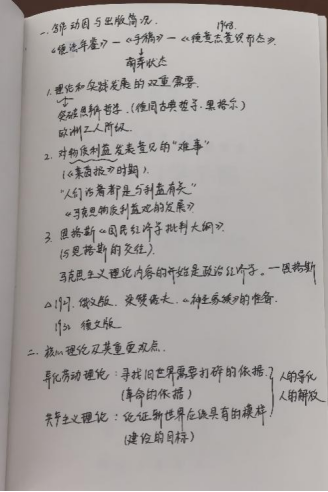 一、写作动因与出版简况.
1948.
《德法年鉴》—《手稿》—《德意志意识形态》.
萌芽状态
1. 理论和实践发展的双重需要.
突破思辨哲学.(德国古典哲学·黑格尔)
欧洲工人阶级
2. 对物质利益发表意见的"难事"
(《莱茵报》时期).
"人们 都是与利益有关"
《马克思物质利益观的发展》.
3. 恩格斯《国民经济学批判大纲》.
(与恩格斯的交往).
马克思主义理论内容的开始是政治经济学。—恩格斯
△1927. 俄文版. 《神圣家族》的准备.
1932 德文版
二、核心理论及其重要观点.
异化劳动理论:寻找旧世界需要打碎的依据.
(革命的依据)
人的异化
人的解放
共产主义理论:论证新世界应该具有的模样
(建设的目标)